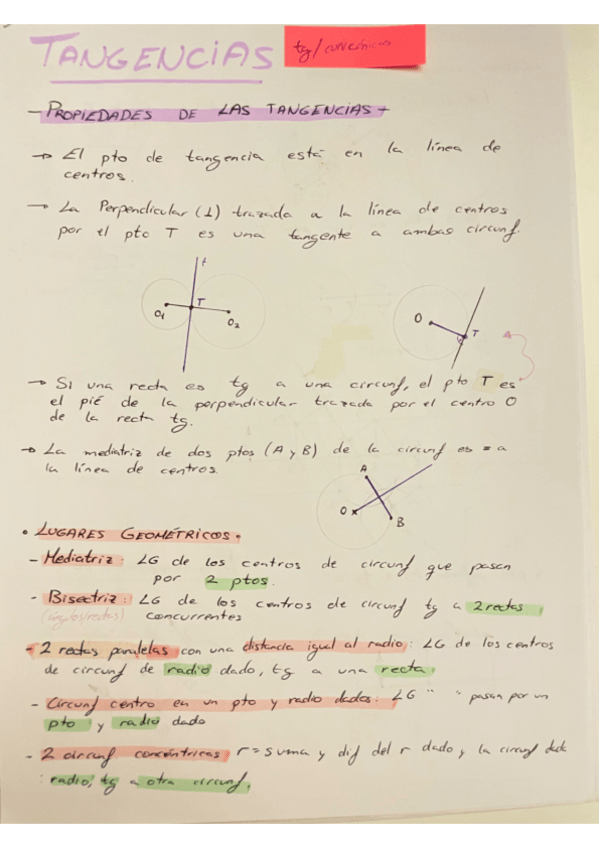 TANGENCIAS
tg/ concéntricas
- PROPIEDADES DE LAS TANGENCIAS -
→ El pto de tangencia está en la línea de
centros.
→ La Perpendicular (⊥) trazada a la línea de centros
por el pto T es una tangente a ambas circunf.
t
T
O1
O2
O
T
→ Si una recta es tg a una circunf, el pto T es
el pié de la perpendicular trazada por el centro O
de la recta tg.
→ La mediatriz de dos ptos (A y B) de la circunf es = a
la línea de centros.
A
O
B
• LUGARES GEOMÉTRICOS •
- Mediatriz: LG de los centros de circunf que pasan
por 2 ptos.
- Bisectriz: LG de los centros de circunf tg a 2 rectas
(ángulos/rectas) concurrentes
- 2 rectas paralelas con una distancia igual al radio: LG de los centros
de circunf de radio dado, tg a una recta.
- Circunf centro en un pto y radio dados: LG " " pasan por un
pto y radio dado
- 2 circunf concéntricas r = suma y dif del r dado y la circunf dada
: radio; tg a otra circunf.